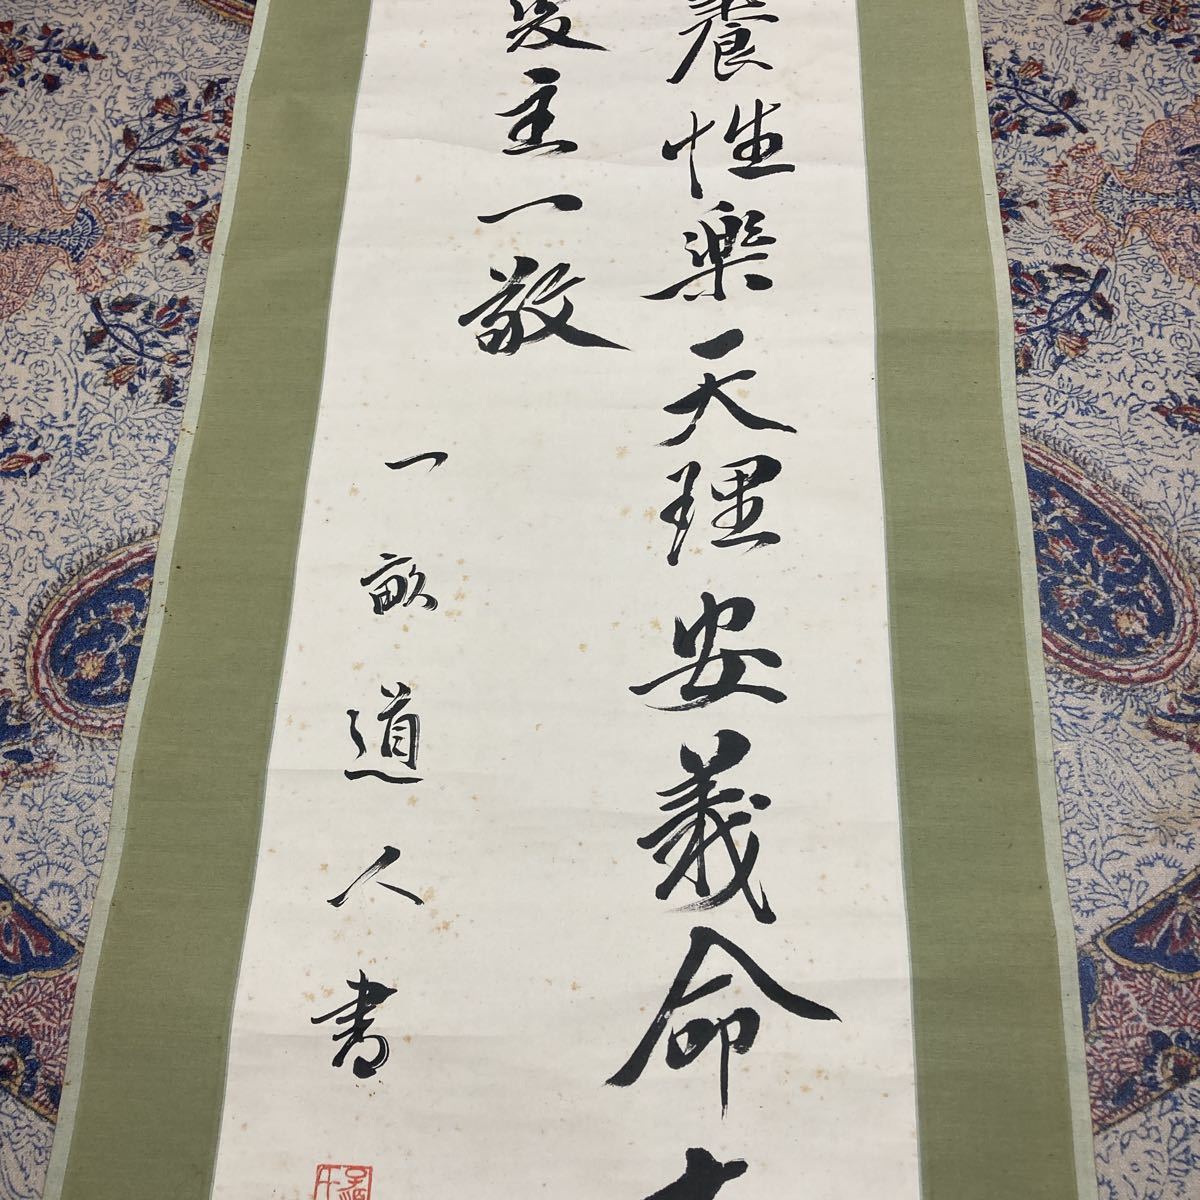 養性樂天理安義命
主一敬
一畝道人書